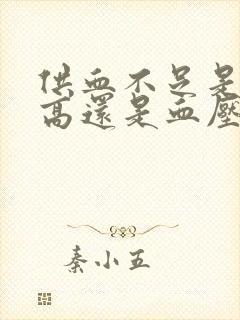 供血不足是
高還是血壓
秦小五